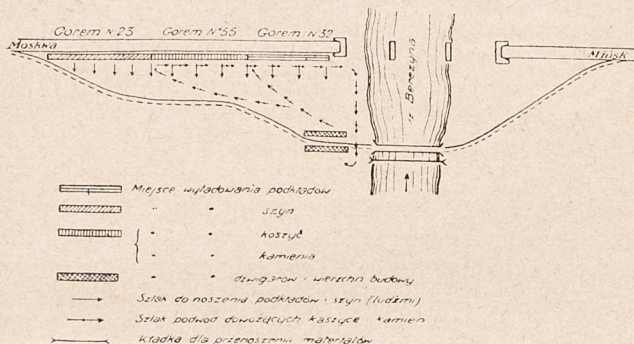 Gorem N 23 Gorem N°55 Gorem N 32
Moskwa
Mińsk
r. Berezyna
Miejsce wyładowania podkładów
" " szyn
" " koszyć
" " kamienia
" " dzwigarow i wierzchn budowy
Szlak do noszenia podkładów i szyn (ludźmi)
Szlak podwod dowożących kaszyce i kamien
Kładka dla przenoszenia materiałów